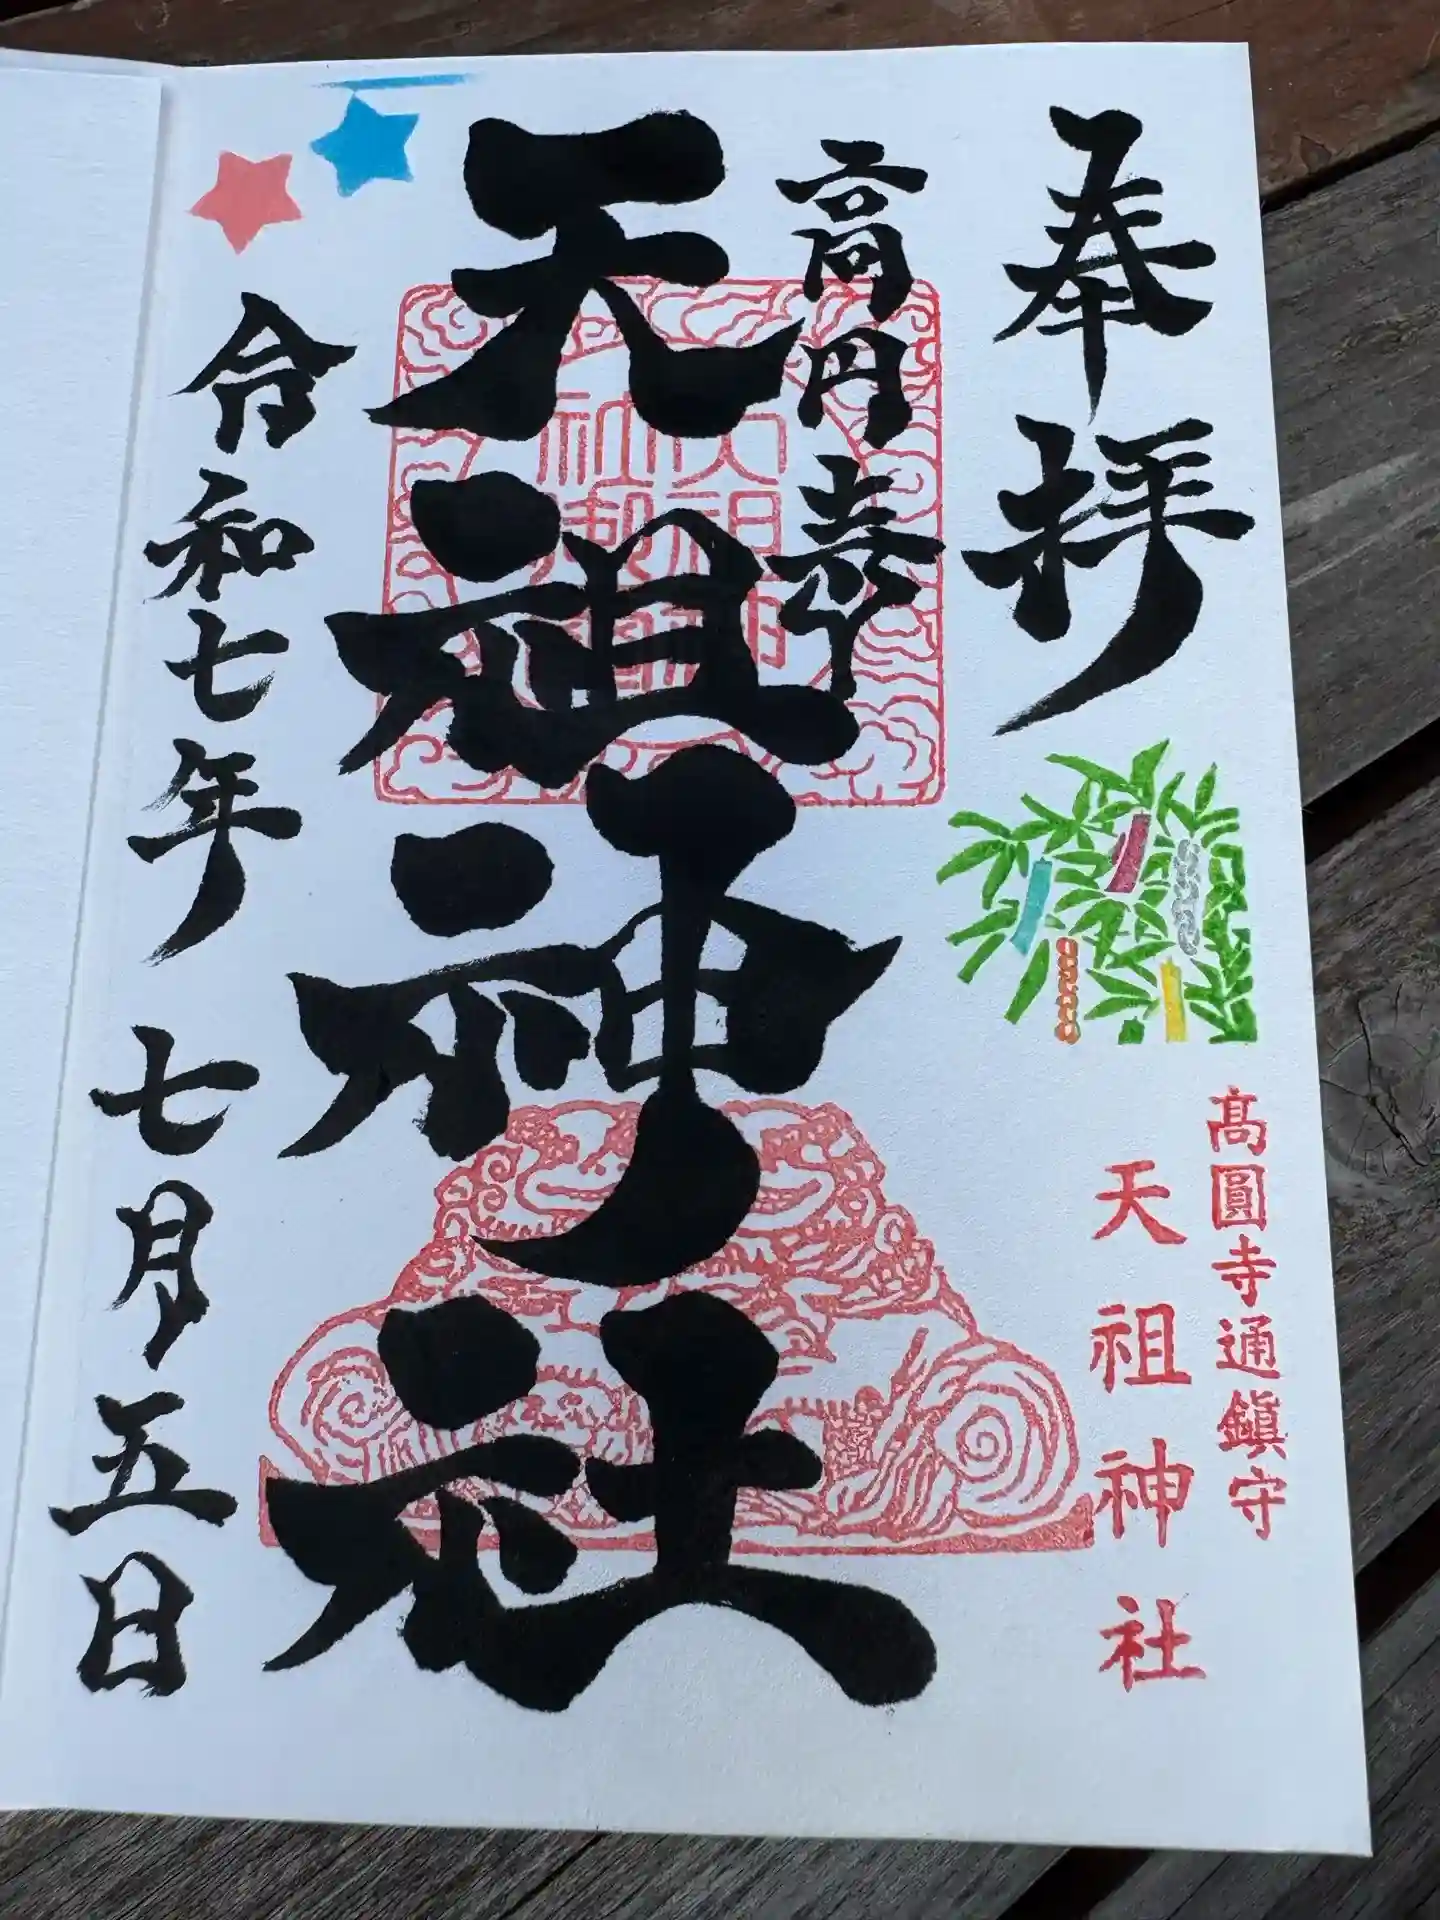 奉拝
髙圓寺通鎮守
天祖神社
高円寺
天祖神社
令和七年 七月五日